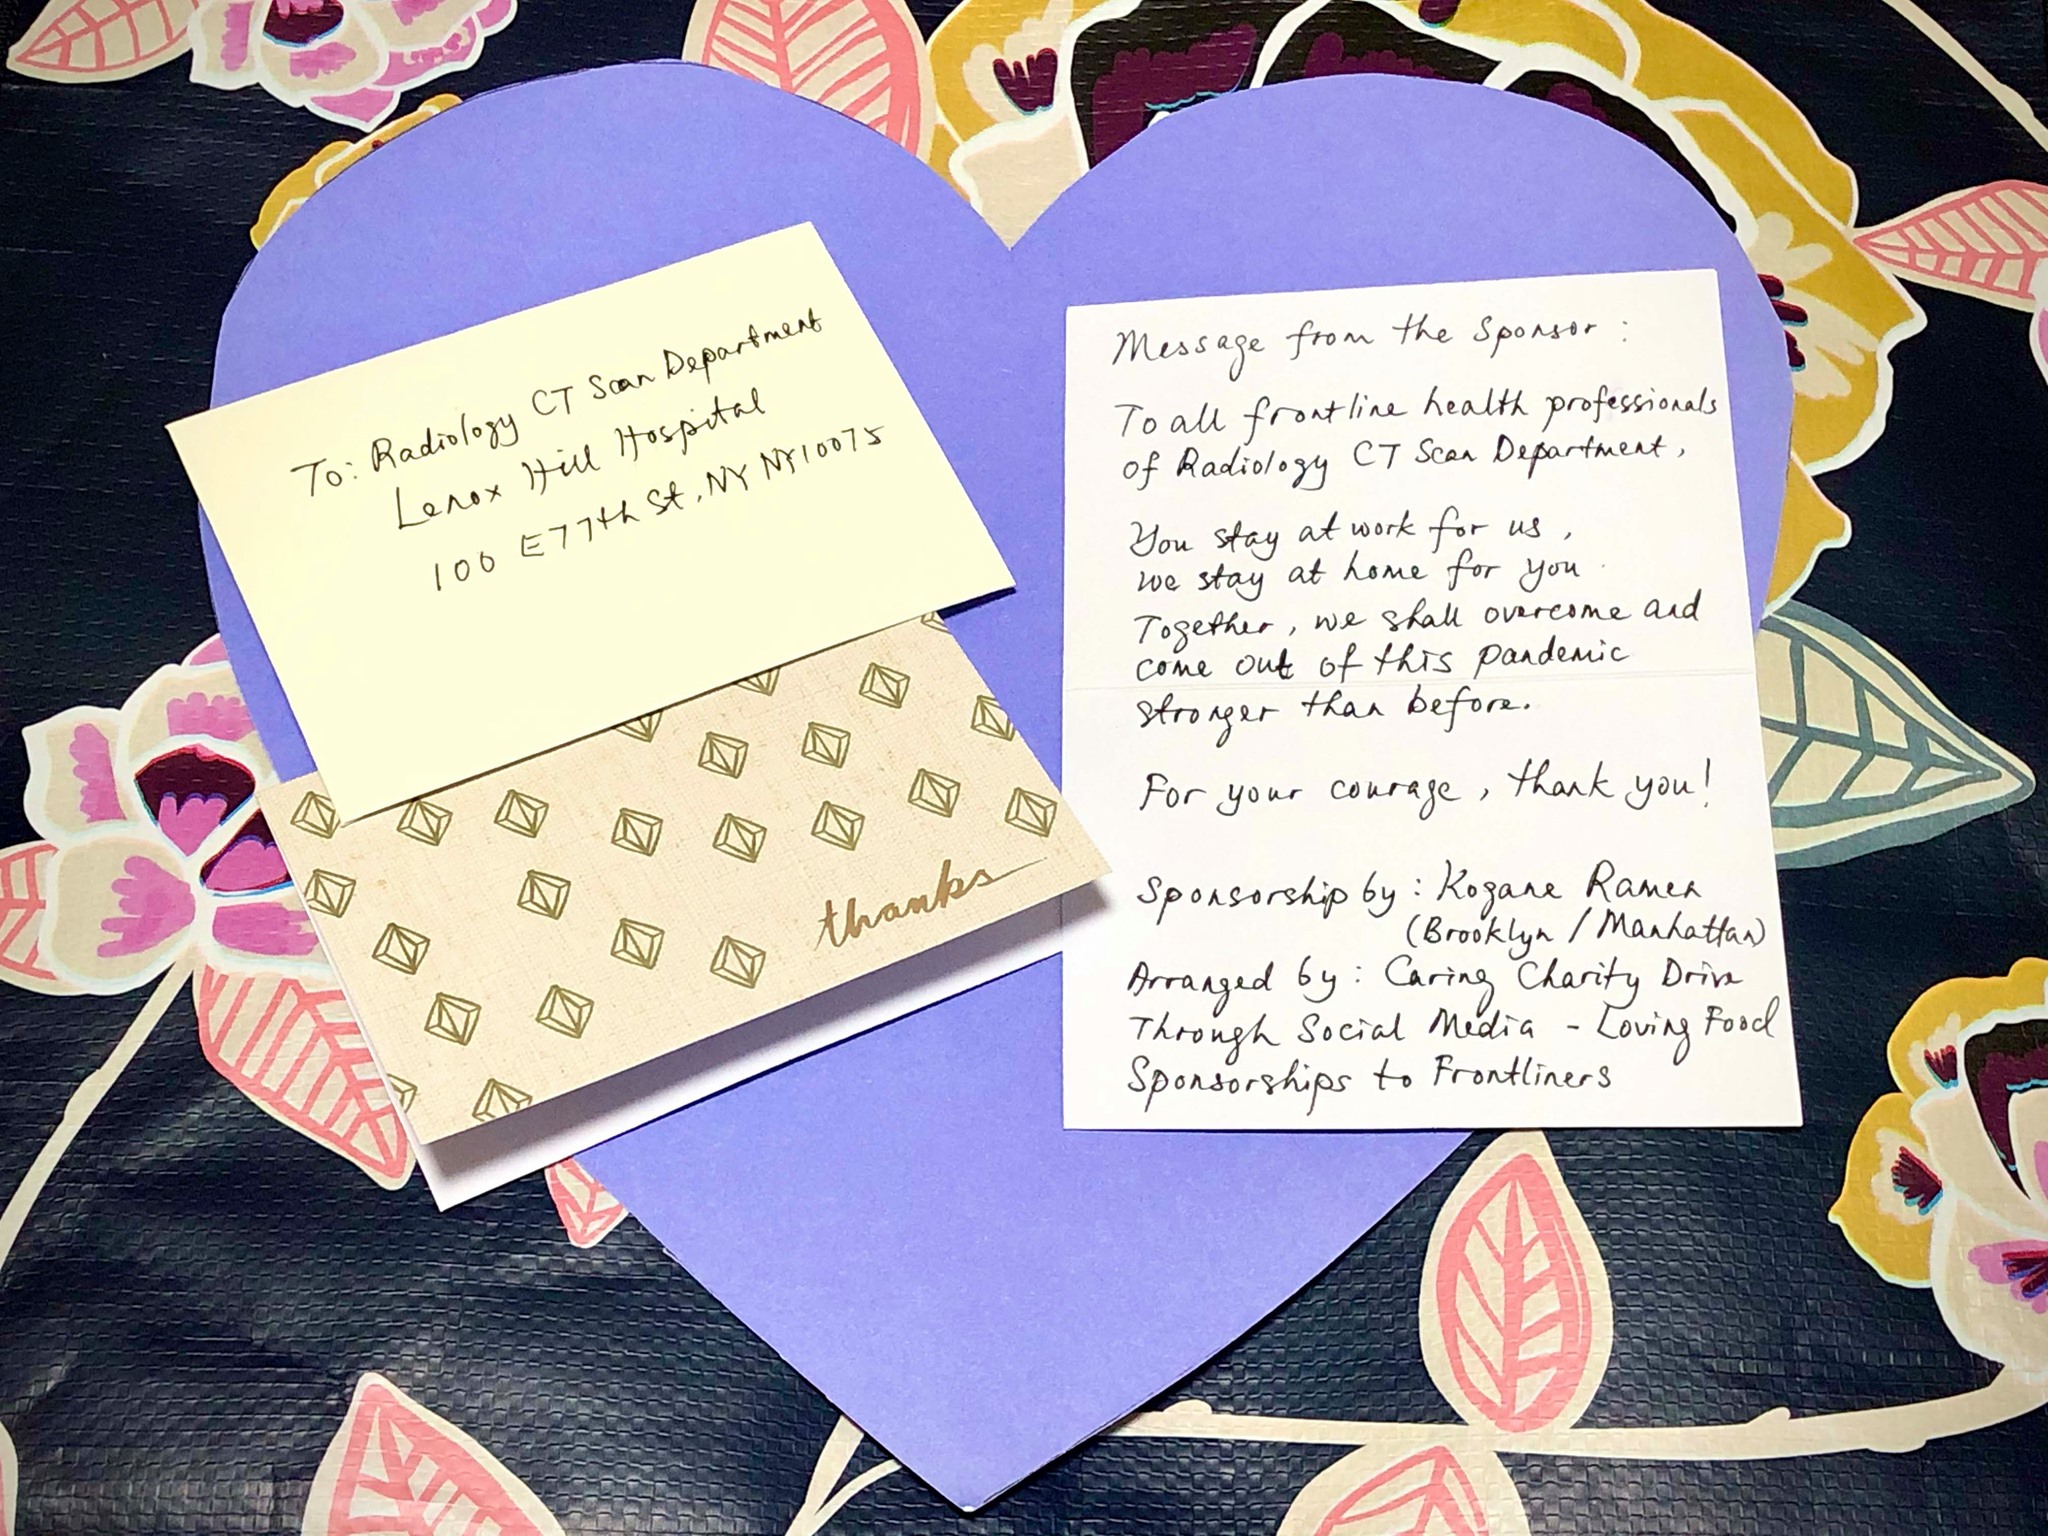 To: Radiology CT Scan Department
Lenox Hill Hospital
100 E77th St, NY NY10075
thanks
Message from the Sponsor:
To all frontline health professionals
of Radiology CT Scan Department,
You stay at work for us,
we stay at home for you.
Together, we shall overcome and
come out of this pandemic
stronger than before.
For your courage, thank you!
Sponsorship by: Kogane Ramen
(Brooklyn / Manhattan)
Arranged by: Caring Charity Drive
Through Social Media - Loving Food
Sponsorships to Frontliners